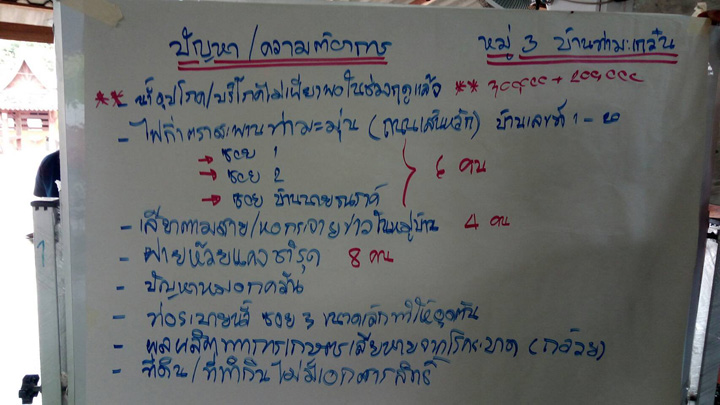 ปัญหา/ความต้องการ หมู่ 3 บ้านท่ามะเกว๋น
** น้ำอุปโภค/บริโภคไม่เพียงพอในช่วงฤดูแล้ง **
- ไฟกิ่ง สะพานท่ามะมุ่น (ถนนเส้นหลัก) บ้านเลขที่ 1 -
→ ซอย 1
→ ซอย 2 6 คน
→ ซอย บ้านนาย
- เสียงตามสาย/หอกระจายข่าวในหมู่บ้าน 4 คน
- ฝายห้วยแดงชำรุด 8 คน
- ปัญหาหมอกควัน
- ท่อระบายน้ำ ซอย 3 ขนาดเล็กทำให้อุดตัน
- ผลผลิตทางการเกษตรเสียหายจากโรคระบาด (กล้วย)
- ที่ดิน/ที่ทำกินไม่มีเอกสารสิทธิ์